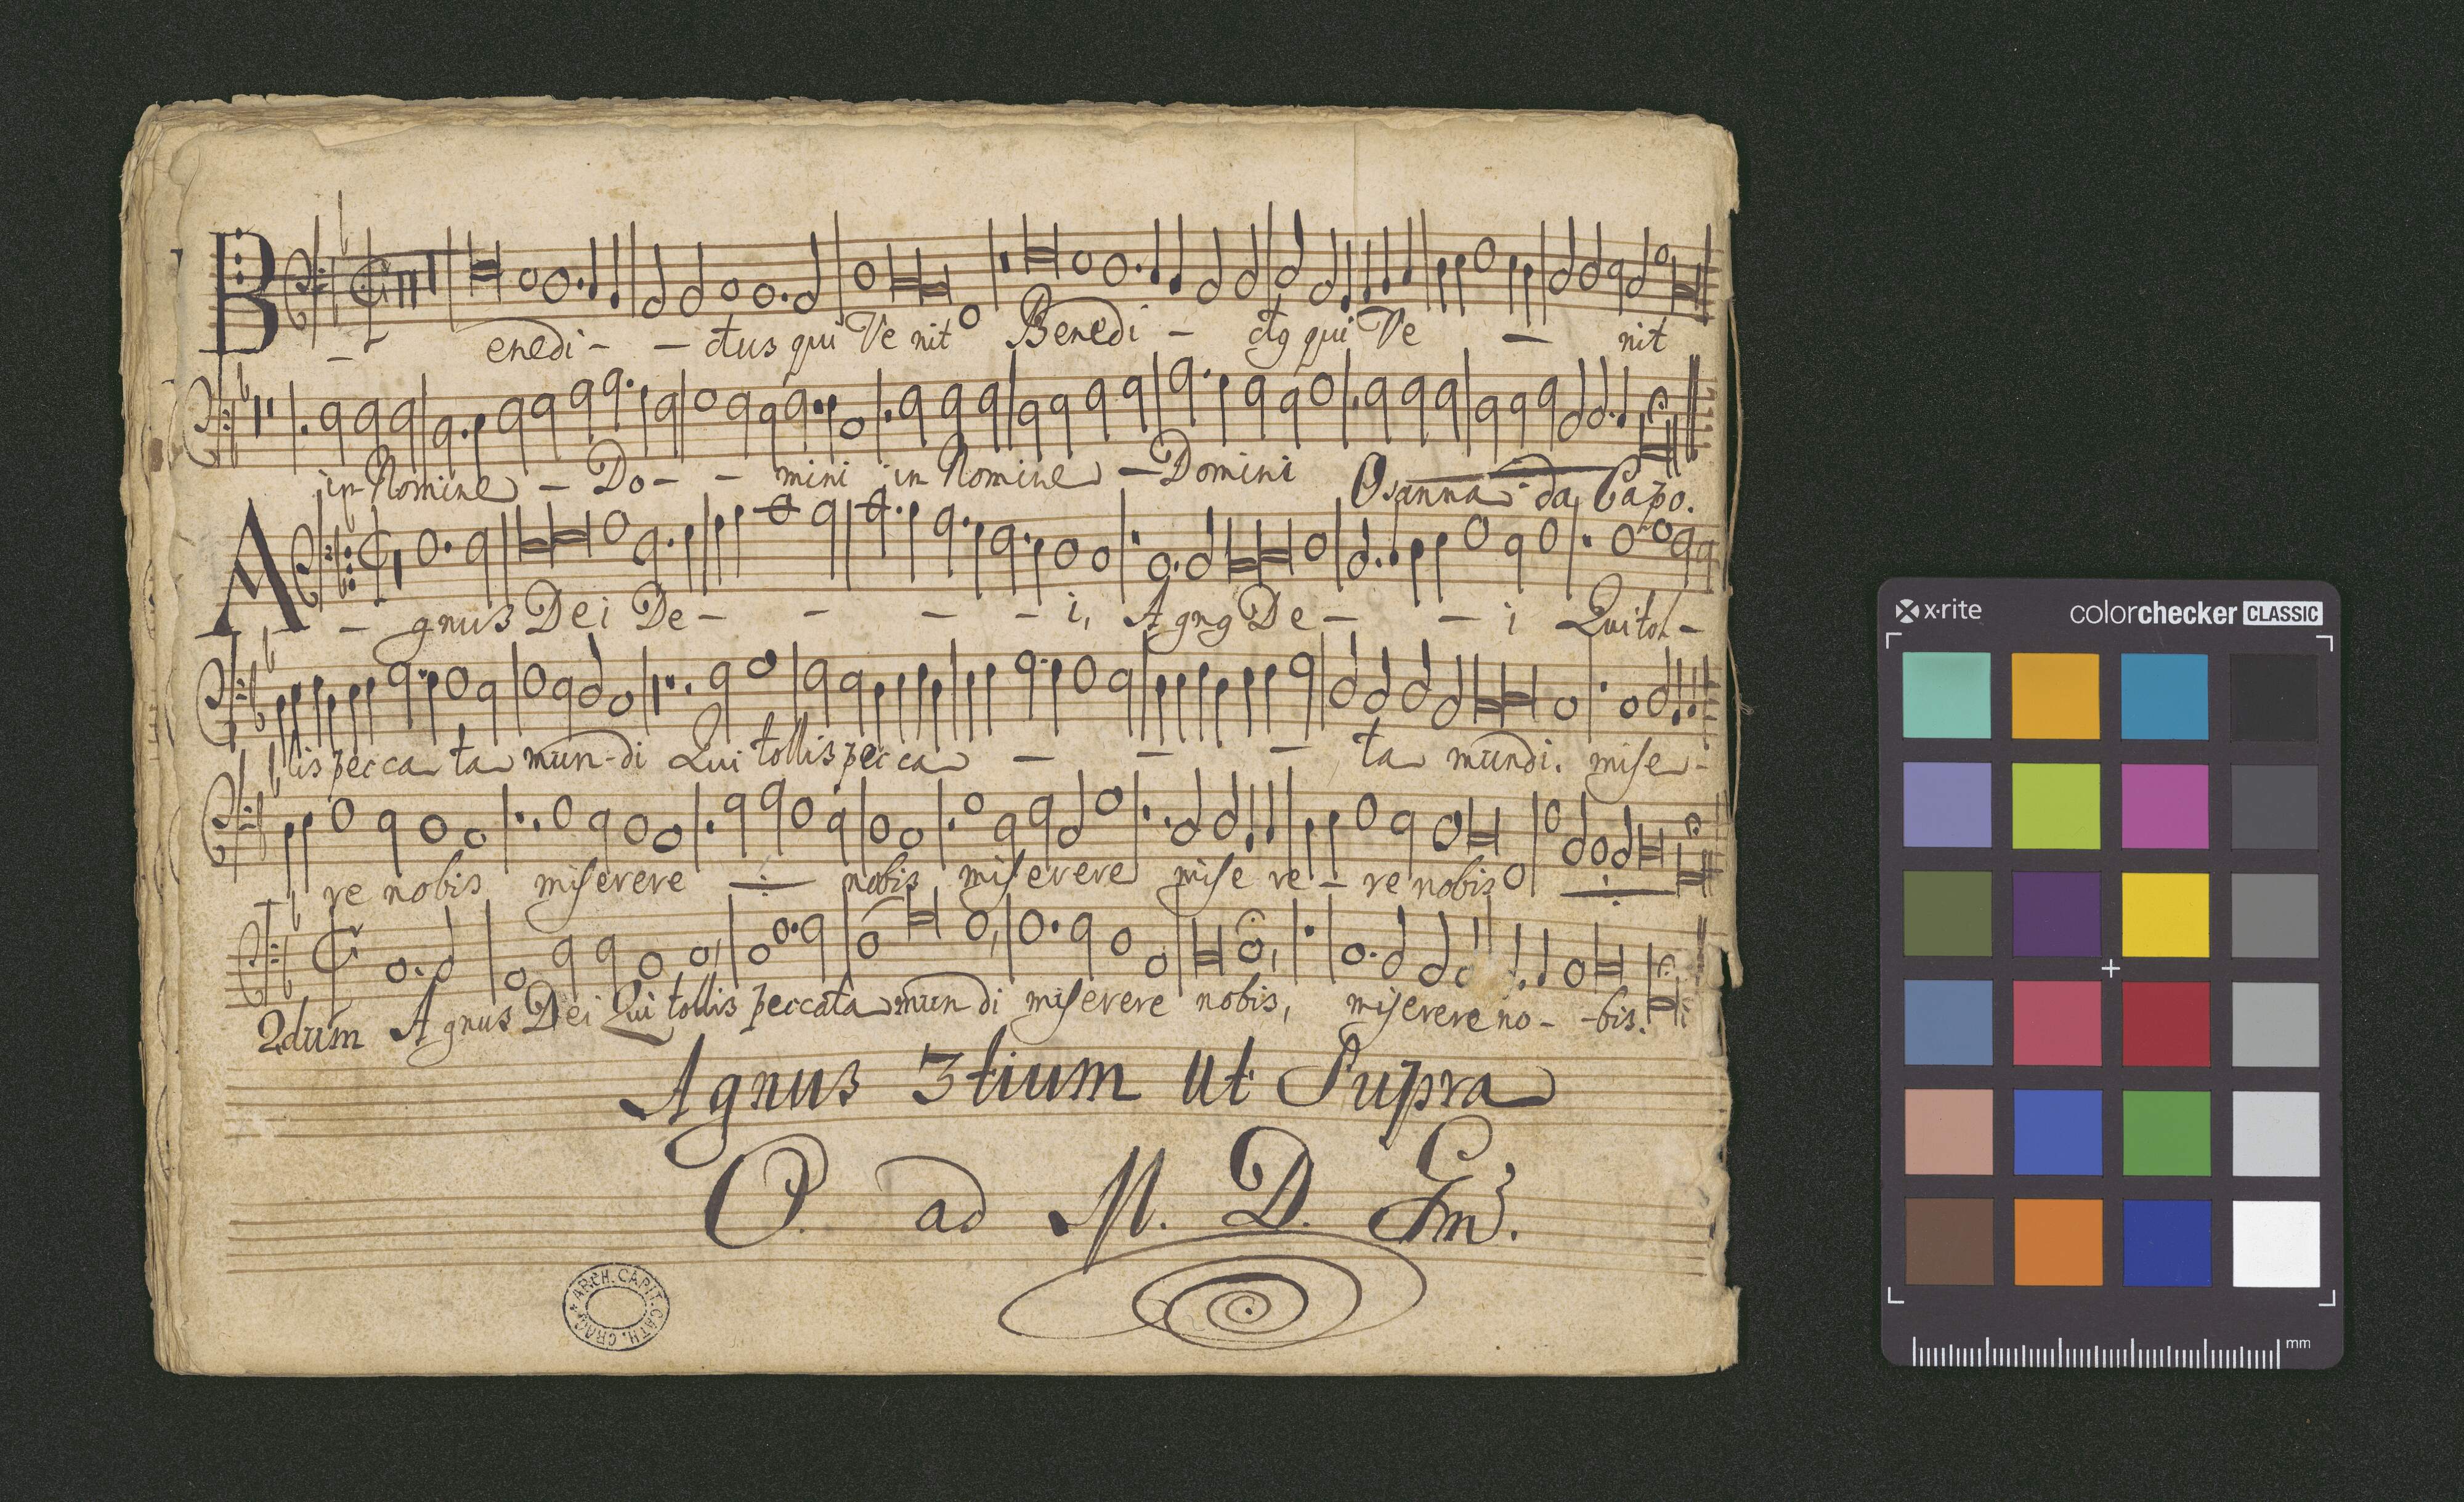 Benedi - - ctus qui Ve nit Benedi - ctꝯ qui Ve - nit
in Nomine - Do - - mini in Nomine - Domini Osanna da Capo.
A - gnus Dei De - - - - i, Agnꝯ De - - i Qui tol -
lis pecca ta mun-di Qui tollis pecca - - - ta mundi. mise -
re nobis miserere nobis miserere mise re - re nobis
2dum Agnus Dei Qui tollis peccata mun di miserere nobis, miserere no - - bis.
Agnus 3tium ut Supra
O. ad M. D. Gm̃.
ARCH. CAPIT. CATH. CRAC.
x·rite colorchecker CLASSIC
mm